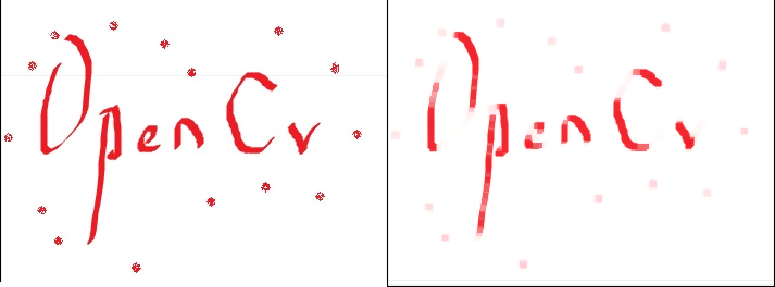 OpenCv OpenCv